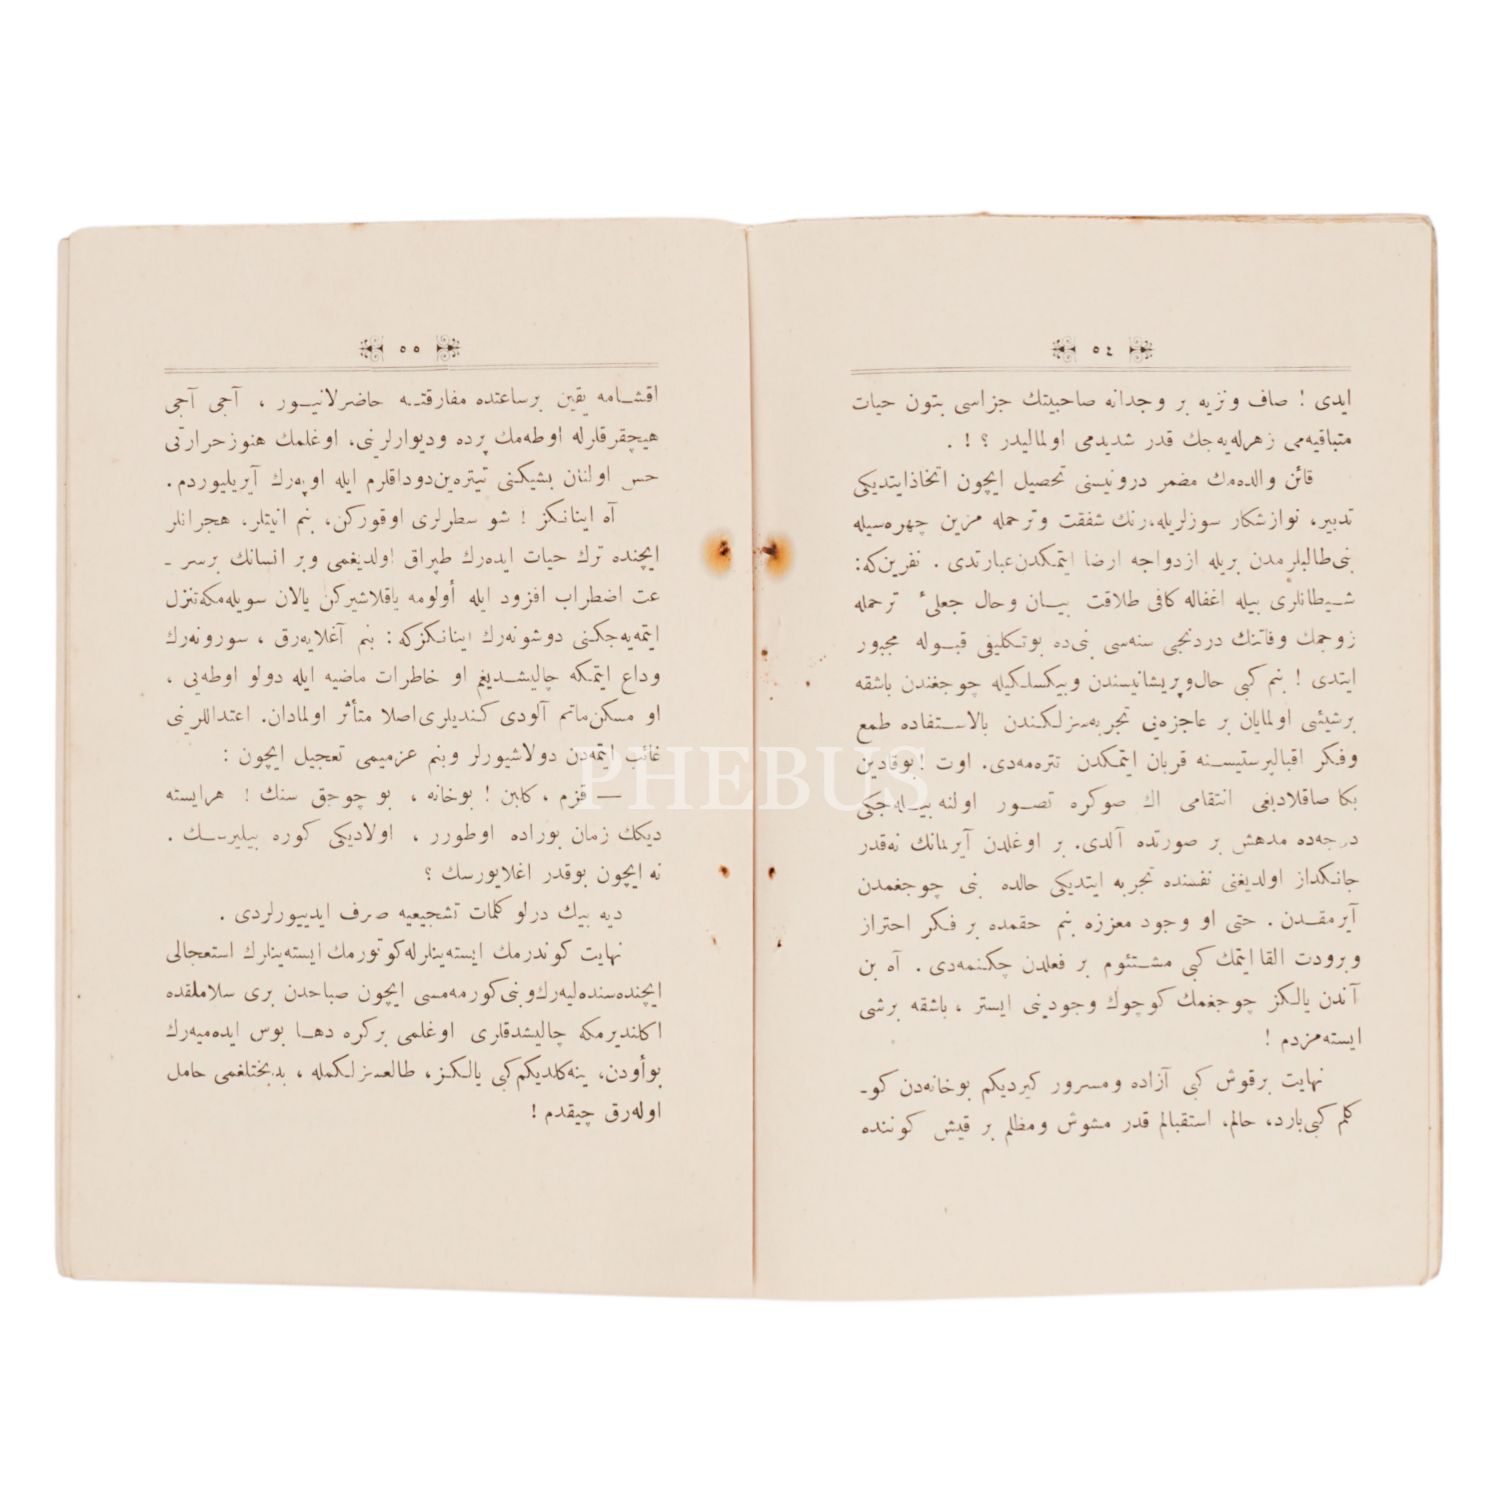 ٥٤
ایدی ! صاف ونزیه بر وجدانه صاحبیتك جزاسی بتون حیات
متباقیه‌می زهرله‌یه‌جك قدر شدیدمی اولمالیدر ؟ ! .
قائن والده‌مك مضمر درونیسنی تحصیل ایچون اتخاذایتدیكی
تدبیر، نوازشكار سوزلریله،رنك شفقت وترحمله مزین چهره‌سیله
بنی‌طالبلرمدن بریله ازدواجه ارضا ایتمكدن‌عبارتدی . نفرین‌كه:
شیطانلری بیله اغفاله كافی طلاقت بیان وحال جعلیٔ ترحمله
زوجمك وفاتنك دردنجی سنه‌سی بنی‌ده بوتكلیفی قبوله مجبور
ایتدی ! بنم كبی حال‌وپریشانیسندن وبیكسلكیله چوجغندن باشقه
برشیئی اولمایان بر عاجزه‌یی تجربه‌سزلكندن بالاستفاده طمع
وفكر اقبالپرستیسنه قربان ایتمكدن تتره‌مه‌دی. اوت ! بوقادین
بكا صاقلادیغی انتقامی اك صوكره تصور اولنه بیله‌جكی
درجه‌ده مدهش بر صورتده آلدی. بر اوغلدن آیرلمانك نه‌قدر
جانكداز اولدیغنی نفسنده تجربه ایتدیكی حالده بنی چوجغمدن
آیرمقدن . حتی او وجود معززه بنم حقمده بر فكر احتراز
وبرودت القا ایتمك كبی مشئوم بر فعلدن چكنمه‌دی . آه بن
آندن یالكز چوجغمك كوچوك وجودینی ایستر ، باشقه برشی
ایسته‌مزدم !
نهایت برقوش كبی آزاده ومسرور كیردیكم بوخانه‌دن كو-
كلم كبی‌بارد، حالم، استقبالم قدر مشوش ومظلم بر قیش كوننده
٥٥
اقشامه یقین برساعتده مفارقته حاضرلانیور ، آجی آجی
هیچقرقلرله اوطه‌مك پرده ودیوارلرینی، اوغلمك هنوزحرارتی
حس اولنان بشیكنی تیتره‌ین‌دوداقلرم ایله اوپه‌رك آیریلیوردم.
آه اینانكز ! شو سطرلری اوقوركن، بنم انیتلر، هجرانلر
ایچنده ترك حیات ایده‌رك طپراق اولدیغمی وبر انسانك برسر-
عت اضطراب افزود ایله أولومه یاقلاشیركن یالان سویله‌مكه‌تنزل
ایتمه‌یه‌جكنی دوشونه‌رك اینانكزكه: بنم آغلایه‌رق ، سورونه‌رك
وداع ایتمكه چالیشدیغم او خاطرات ماضیه ایله دولو اوطه‌یی ،
او مسكن‌ماتم آلودی كندیلری‌اصلا متأثر اولمادان. اعتداللرینی
غائب ایتمه‌دن دولاشیورلر وبنم عزمیمی تعجیل ایچون :
— قزم ، كلین ! بوخانه ، بو چوجق سنك ! هرایسته
دیكك زمان بوراده اوطورر ، اولادیكی كوره بیلیرسك .
نه ایچون بوقدر اغلایورسك ؟
دیه بیك درلو كلمات تشجیعیه صرف ایدییورلردی .
نهایت كوندرمك ایسته‌ینلرله‌كوتورمك ایسته‌ینلرك استعجالی
ایچنده‌سنده‌لیه‌رك‌وبنی‌كورمه‌مسی ایچون صباحدن بری سلاملقده
اكلندیرمكه چالیشدقلری اوغلمی بركره دها بوس ایده‌میه‌رك
بوأودن، ینه‌كلدیكم‌كبی یالكز، طالعسزلكمله ، بدبختلغمی حامل
اوله‌رق چیقدم !
PHEBUS